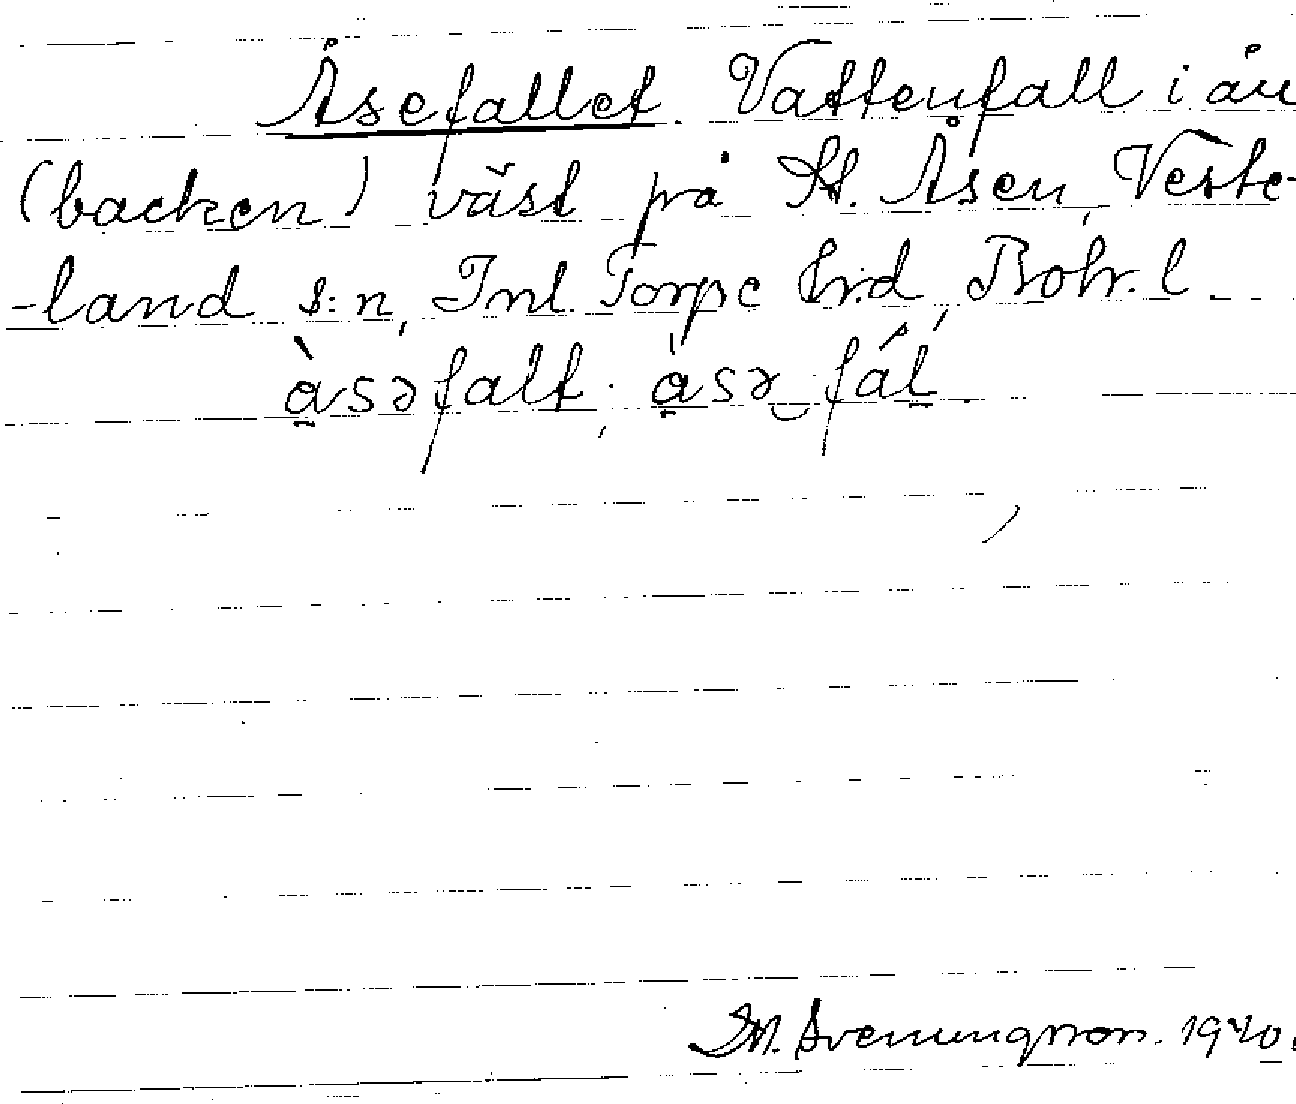 Åsefallet. Vattenfall i ån
(backen) väst på St. Åsen, Veste-
-land s:n, Inl. Torpe hrd, Boh. l
å̀səfalt; å̀sə fál
M. Svenungsson. 1940.